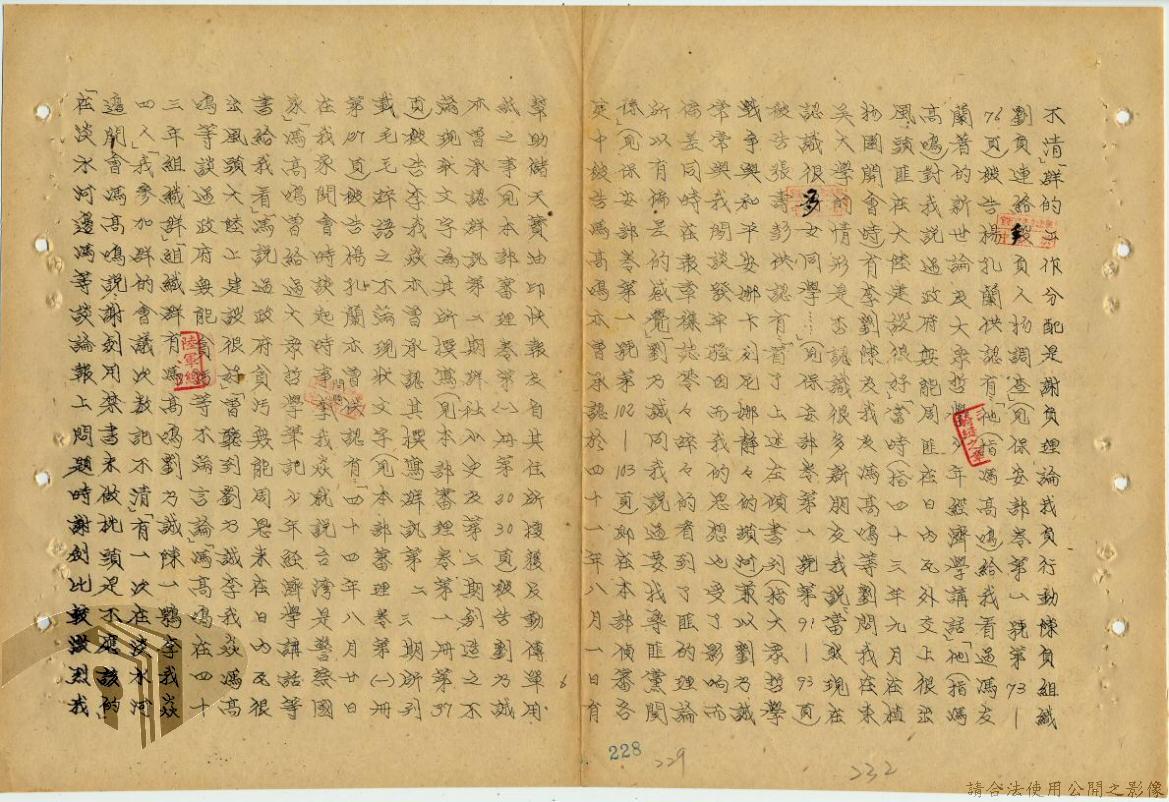 不清」群的工作分配是謝負理論我負行動陳負組織
劉負連給毅負人物調查(見保安部卷第一號第73—
76頁)被告楊孔蘭供認有「他(指馮高鳴)給我看過馮友
蘭著的新世論及大眾哲學少年經濟學講話」「他(指馮
高鳴)對我說過政府無能周匪在日內瓦外交上很出
風頭匪在大陸建設很好」「當時(指四十三年九月在植
物園開會時)有李劉陳及我及馮高鳴等劉問我在來
吳大學的情形是否認識很多新朋友我說當然現在
認識很多女同學……(見保安部卷第一號第91—93頁)
被告張壽彭供認有「看了上述左傾書刊(指大眾哲學
戰爭與和平安娜卡列尼娜靜々的頓河)兼以劉乃誠
常常與我閒談發牢騷因而我的思想也受了影响而
偏差同時在報章雜誌零々碎々的看到了匪的理論
所以有偏差的感覺」劉乃誠同我說過要找尋匪黨關
係(見保安部卷第一號第102—103頁)郊在本部偵審各
庭中被告馮高鳴亦曾承認於四十一年八月一日有
幫助儲天寶油印快報及自其住所搜獲反動傳單用
紙之事(見本部審理卷第(一)冊第3030頁)被告劉乃誠
亦曾承認群訊第一二期群社小史及第三期創造之不
滿現狀文字為其所撰寫(見本部審理卷第一冊第37
頁)被告李我焱亦曾承認其撰寫群訊第一二三期所列
載毛毛碎語之不滿現狀文字(見本部審理卷第(一)冊
第107頁)被告楊孔蘭亦曾供認有「四十四年八月廿日
在我家開會時談起時事李我焱就說台灣是警察國
家」馮高鳴曾給過大眾哲學筆記少年經濟學講話等
書給我看」馮說過政府貪污無能周恩來在日內瓦很
出風頭大陸上建設很好」「曾聽到劉乃誠李我焱馮高
鳴等談過政府無能貪污等不滿言論」馮高鳴在四十
三年組織群」「組織群有馮高鳴劉乃誠陳一鶚李我焱
四人」「我參加群的會議次數記不清」「有一次在淡水河
邊開會馮高鳴說謝剑用禁書來做枕頭是不應該的」
「在淡水河邊馮等談論報上問題時謝剑比較激烈我
228
229
232
請合法使用公開之影像